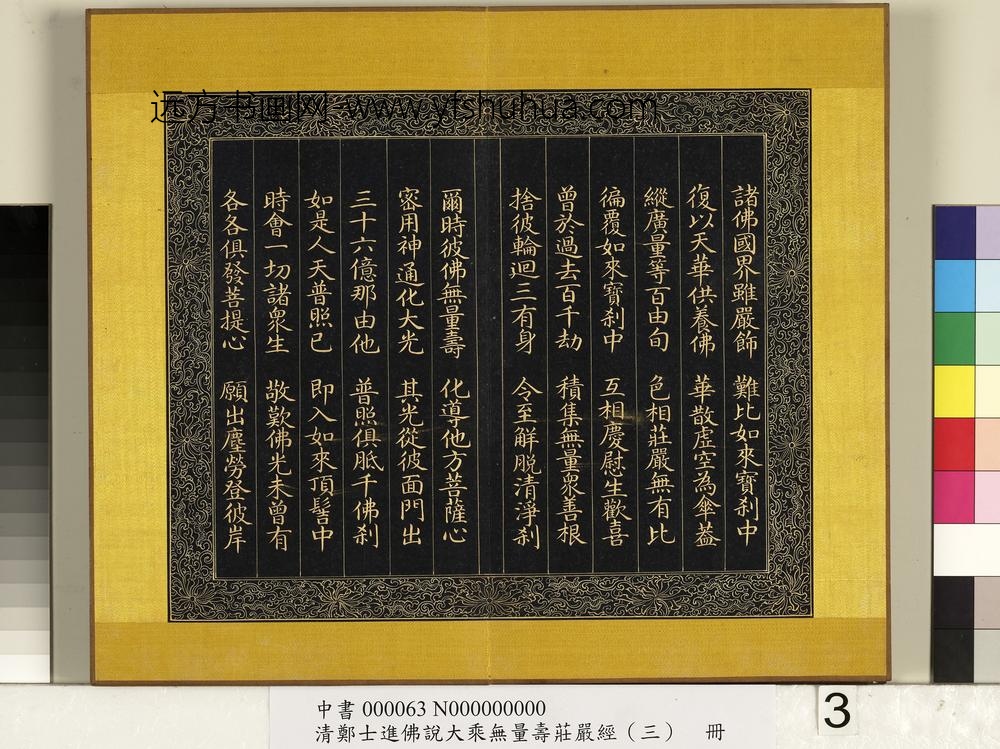 远方书画网 www.yfshuhua.com
諸佛國界雖嚴飾 難比如來寶刹中
復以天華供養佛 華散虛空為傘葢
縱廣量等百由旬 色相莊嚴無有比
徧覆如來寶刹中 互相慶慰生歡喜
曾於過去百千劫 積集無量衆善根
捨彼輪迴三有身 令至解脱清淨刹
爾時彼佛無量壽 化導他方菩薩心
宻用神通化大光 其光從彼面門出
三十六億那由他 普照俱胝千佛刹
如是人天普照已 即入如來頂髻中
時會一切諸衆生 敬歎佛光未曾有
各各俱發菩提心 願出塵勞登彼岸
中書 000063 N000000000
清鄭士進佛說大乘無量壽莊嚴經（三） 冊
3